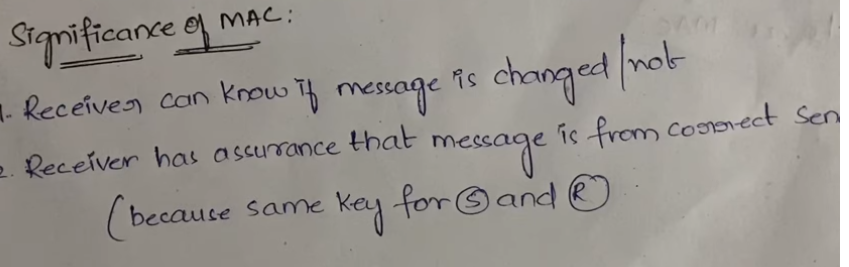 Significance of MAC:
1. Receiver can know if message is changed/not
2. Receiver has assurance that message is from correct Sen
(because same key for Ⓢ and Ⓡ